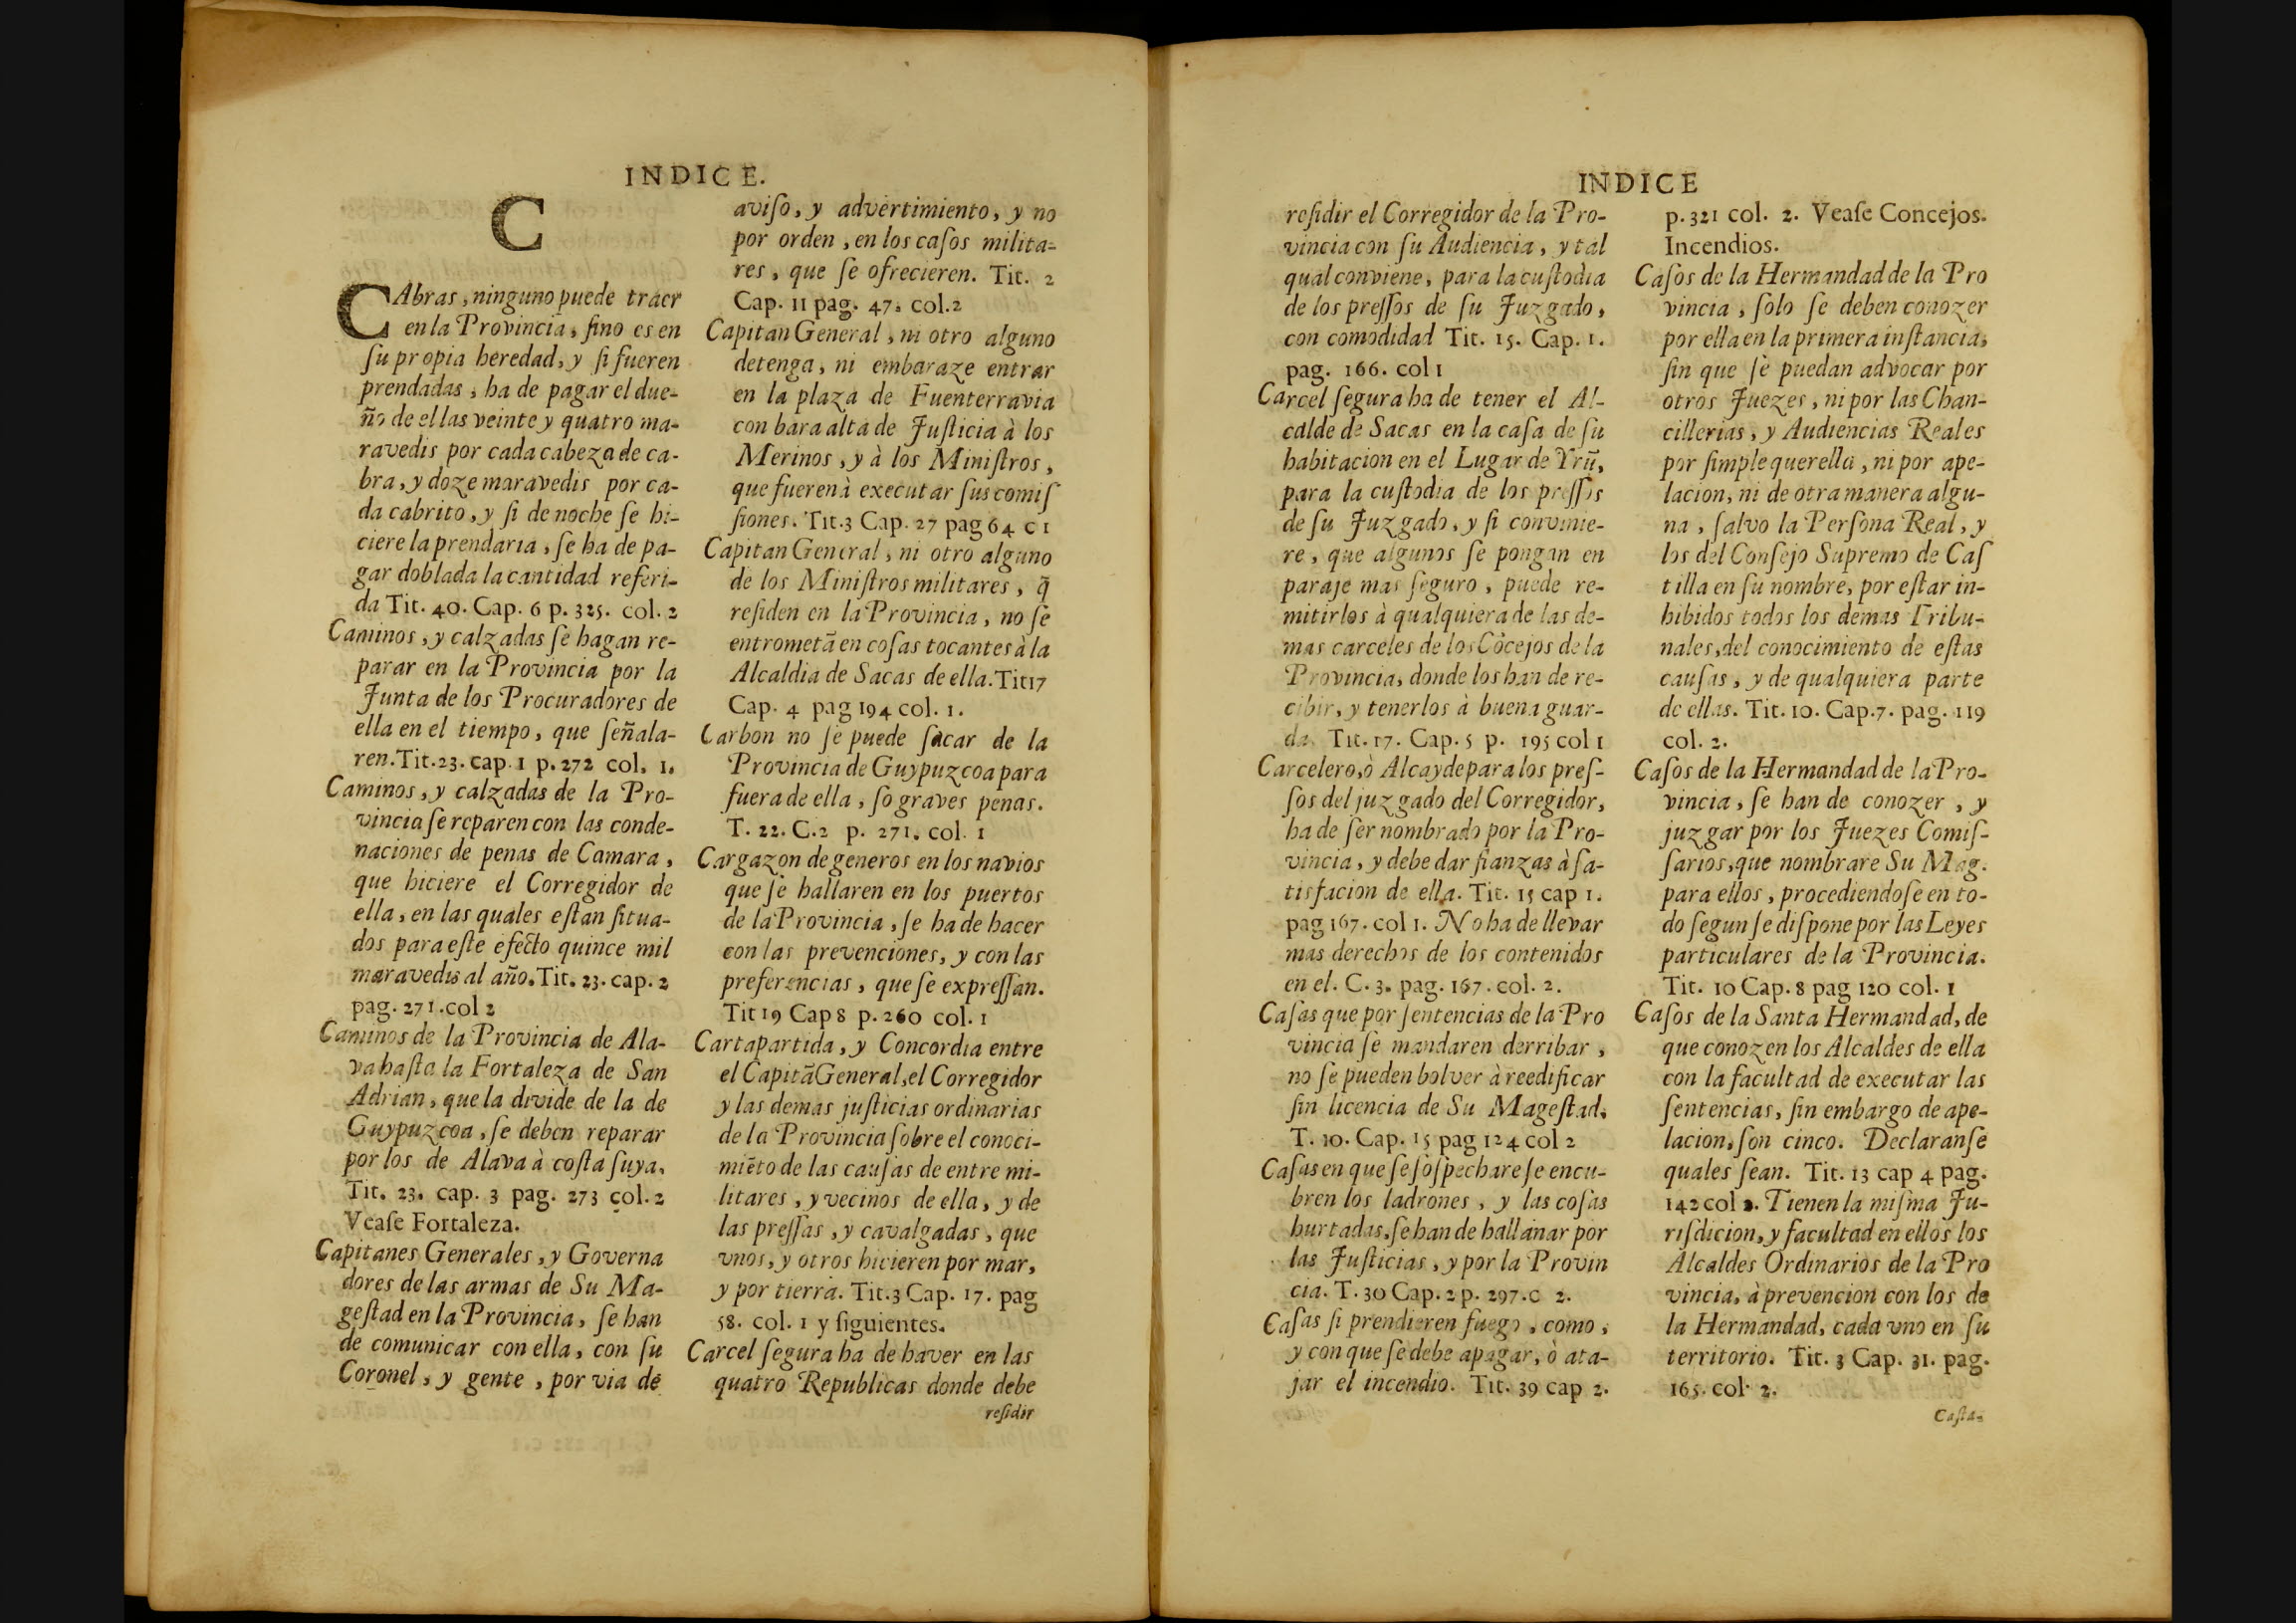 INDICE.
C
CAbras, ninguno puede traer
en la Provincia, sino es en
su propia heredad, y si fueren
prendadas, ha de pagar el due-
ño de ellas veinte y quatro ma-
ravedis por cada cabeza de ca-
bra, y doze maravedis por ca-
da cabrito, y si de noche se hi-
ciere la prendaria, se ha de pa-
gar doblada la cantidad referi-
da Tit. 40. Cap. 6 p. 325. col. 2
Caminos, y calzadas se hagan re-
parar en la Provincia por la
Junta de los Procuradores de
ella en el tiempo, que señala-
ren. Tit. 23. cap. 1 p. 272 col. 1.
Caminos, y calzadas de la Pro-
vincia se reparen con las conde-
naciones de penas de Camara,
que hiciere el Corregidor de
ella, en las quales estan situa-
dos para este efecto quince mil
maravedis al año. Tit. 23. cap. 2
pag. 271. col 2
Caminos de la Provincia de Ala-
va hasta la Fortaleza de San
Adrian, que la divide de la de
Guypuzcoa, se deben reparar
por los de Alava à costa suya.
Tit. 23. cap. 3 pag. 273 col. 2
Vease Fortaleza.
Capitanes Generales, y Governa
dores de las armas de Su Ma-
gestad en la Provincia, se han
de comunicar con ella, con su
Coronel, y gente, por via de
aviso, y advertimiento, y no
por orden, en los casos milita-
res, que se ofrecieren. Tit. 2
Cap. 11 pag. 47. col. 2
Capitan General, ni otro alguno
detenga, ni embaraze entrar
en la plaza de Fuenterravia
con bara alta de Justicia à los
Merinos, y à los Ministros,
que fueren à executar sus comis
siones. Tit. 3 Cap. 27 pag 64 c 1
Capitan General, ni otro alguno
de los Ministros militares, q̃
residen en la Provincia, no se
entrometã en cosas tocantes à la
Alcaldia de Sacas de ella. Tit 17
Cap. 4 pag 194 col. 1.
Carbon no se puede sacar de la
Provincia de Guypuzcoa para
fuera de ella, so graves penas.
T. 22. C. 2 p. 271. col. 1
Cargazon de generos en los navios
que se hallaren en los puertos
de la Provincia, se ha de hacer
con las prevenciones, y con las
preferencias, que se expressan.
Tit 19 Cap 8 p. 260 col. 1
Cartapartida, y Concordia entre
el Capitã General, el Corregidor
y las demas justicias ordinarias
de la Provincia sobre el conoci-
miẽto de las causas de entre mi-
litares, y vecinos de ella, y de
las pressas, y cavalgadas, que
vnos, y otros hicieren por mar,
y por tierra. Tit. 3 Cap. 17. pag
58. col. 1 y siguientes.
Carcel segura ha de haver en las
quatro Republicas donde debe
residir
INDICE
residir el Corregidor de la Pro-
vincia con su Audiencia, y tal
qual conviene, para la custodia
de los pressos de su Juzgado,
con comodidad Tit. 15. Cap. 1.
pag. 166. col 1
Carcel segura ha de tener el Al-
calde de Sacas en la casa de su
habitacion en el Lugar de Yrũ,
para la custodia de los pressos
de su Juzgado, y si convinie-
re, que algunos se pongan en
paraje mas seguro, puede re-
mitirlos à qualquiera de las de-
mas carceles de los Cõcejos de la
Provincia, donde los han de re-
cibir, y tenerlos à buena guar-
da. Tit. 17. Cap. 5 p. 195 col 1
Carcelero, ò Alcayde para los pres-
sos del juzgado del Corregidor,
ha de ser nombrado por la Pro-
vincia, y debe dar fianzas à sa-
tisfacion de ella. Tit. 15 cap 1.
pag 167. col 1. No ha de llevar
mas derechos de los contenidos
en el. C. 3. pag. 167. col. 2.
Casas que por sentencias de la Pro
vincia se mandaren derribar,
no se pueden bolver à reedificar
sin licencia de Su Magestad.
T. 10. Cap. 15 pag 124 col 2
Casas en que se sospechare se encu-
bren los ladrones, y las cosas
hurtadas, se han de hallanar por
las Justicias, y por la Provin
cia. T. 30 Cap. 2 p. 297. c 2.
Casas si prendieren fuego, como,
y con que se debe apagar, ò ata-
jar el incendio. Tit. 39 cap 2.
p. 321 col. 2. Vease Concejos.
Incendios.
Casos de la Hermandad de la Pro
vincia, solo se deben conozer
por ella en la primera instancia,
sin que se puedan advocar por
otros Juezes, ni por las Chan-
cillerias, y Audiencias Reales
por simple querella, ni por ape-
lacion, ni de otra manera algu-
na, salvo la Persona Real, y
los del Consejo Supremo de Cas
tilla en su nombre, por estar in-
hibidos todos los demas Tribu-
nales, del conocimiento de estas
causas, y de qualquiera parte
de ellas. Tit. 10. Cap. 7. pag. 119
col. 2.
Casos de la Hermandad de la Pro-
vincia, se han de conozer, y
juzgar por los Juezes Comis-
sarios, que nombrare Su Mag.
para ellos, procediendose en to-
do segun se dispone por las Leyes
particulares de la Provincia.
Tit. 10 Cap. 8 pag 120 col. 1
Casos de la Santa Hermandad, de
que conozen los Alcaldes de ella
con la facultad de executar las
sentencias, sin embargo de ape-
lacion, son cinco. Declaranse
quales sean. Tit. 13 cap 4 pag.
142 col 2. Tienen la misma Ju-
risdicion, y facultad en ellos los
Alcaldes Ordinarios de la Pro
vincia, à prevencion con los de
la Hermandad, cada vno en su
territorio. Tit. 3 Cap. 31. pag.
165. col. 2.
Casta-